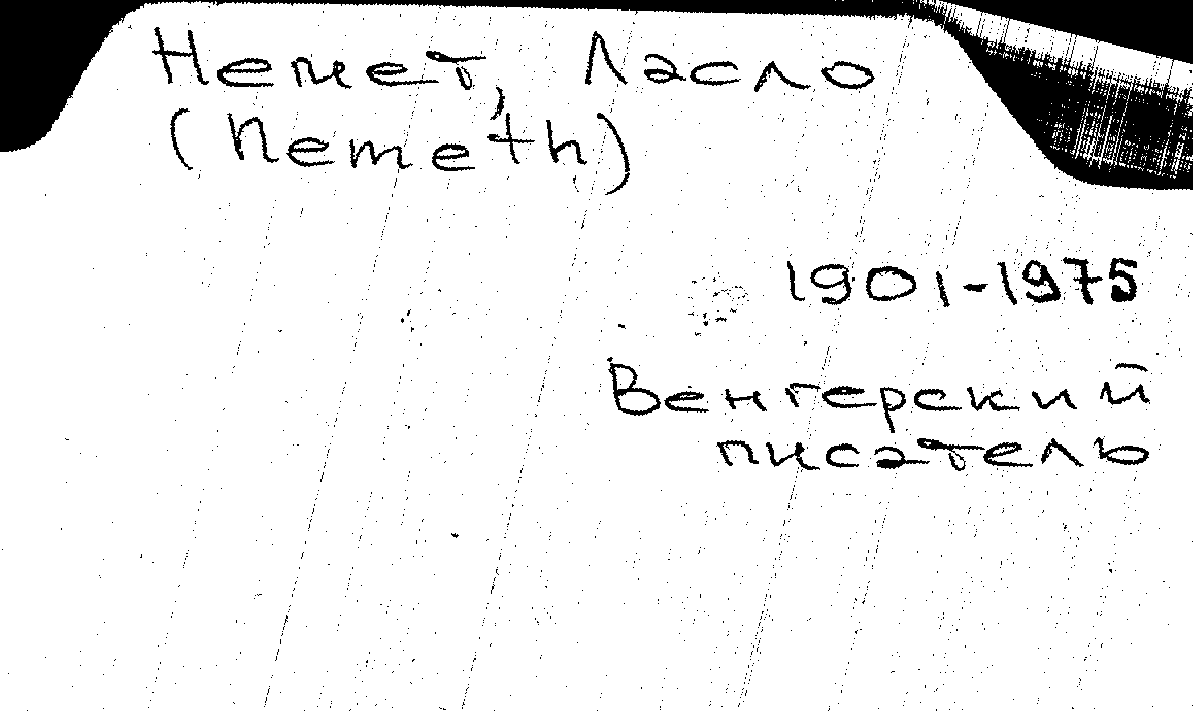 Немет, Ласло
(Nemeth)
1901-1975
Венгерский
писатель